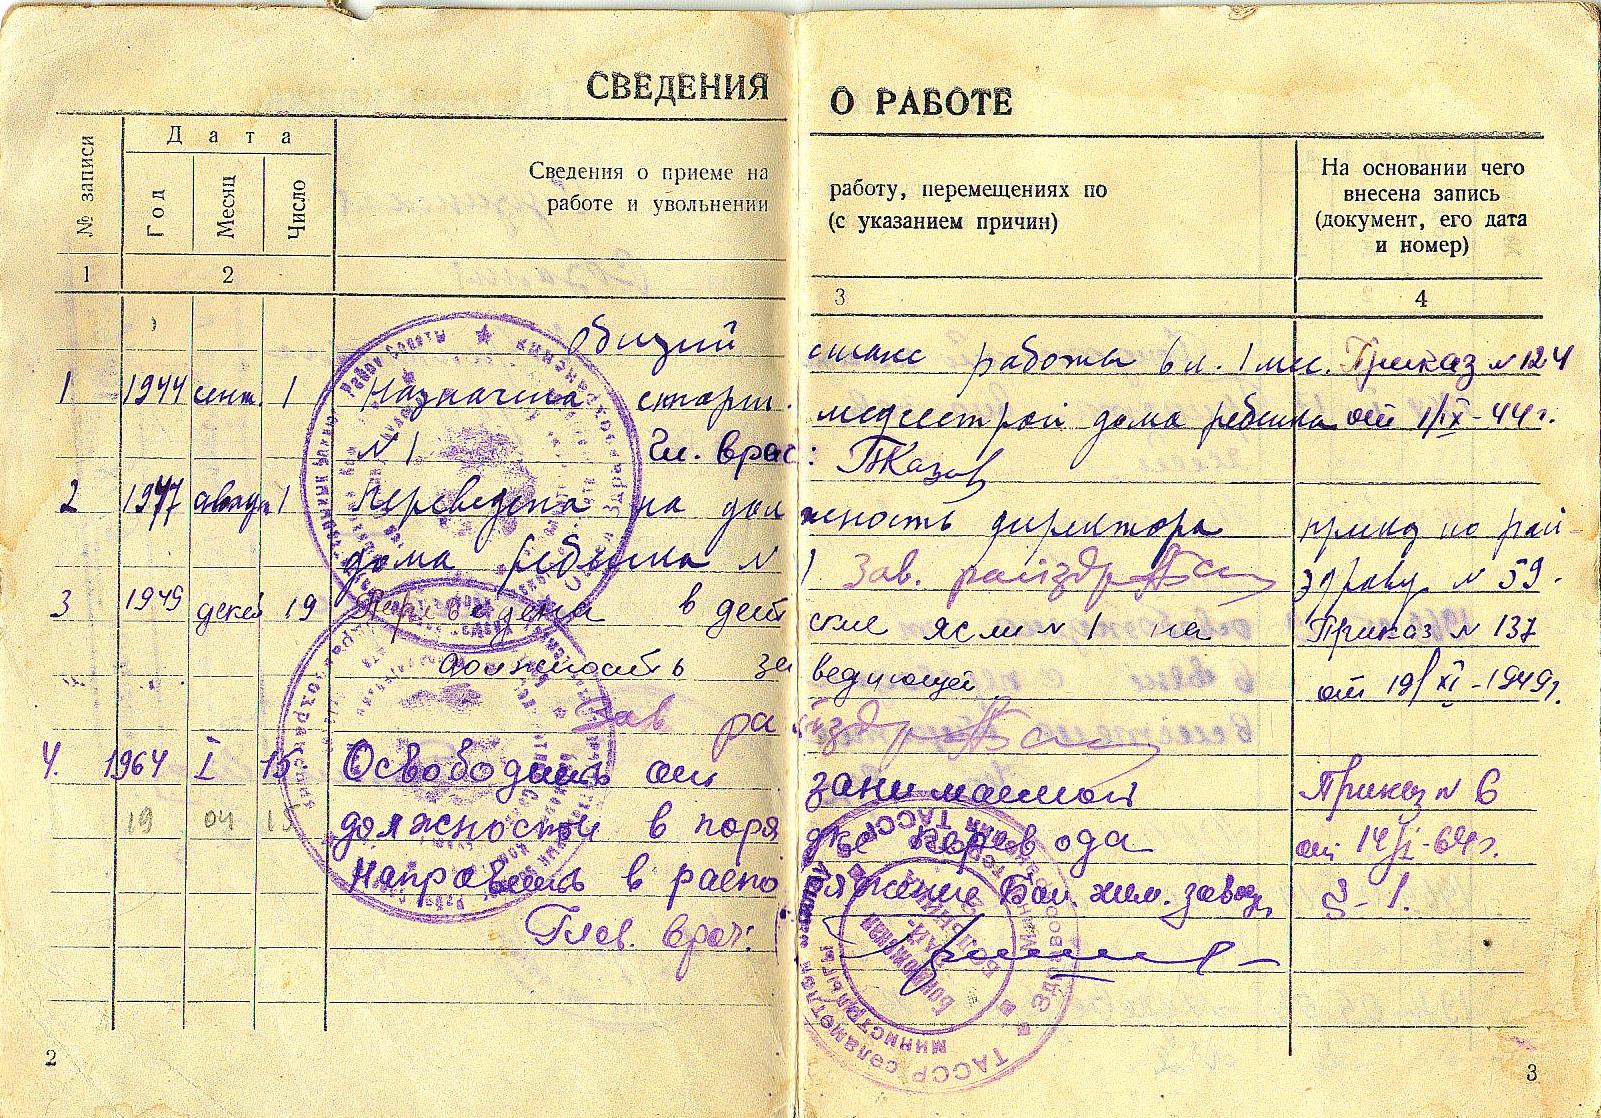 СВЕДЕНИЯ О РАБОТЕ
№ записи
Дата
Год
Месяц
Число
Сведения о приеме на работу, перемещениях по
работе и увольнении (с указанием причин)
На основании чего
внесена запись
(документ, его дата
и номер)
1 2 3 4
Общий стаж работы 6 л. 1 мес. Приказ № 124
1 1944 сент. 1 Назначена старш. медсестрой дома ребенка от 1/IX-44 г.
№ 1 Гл. врач:
2 1947 август 1 Переведена на должность директора приказ по рай-
дома ребенка № 1 Зав. райздр. здраву № 59.
3 1949 декаб 19 Переведена в детские ясли № 1 на Приказ № 137
должность заведующей от 19/XI-1949 г.
Зав райздр
4. 1964 I 15 Освободить от занимаемой Приказ № 6
19 04 15 должности в порядке перевода от 14/I-64 г.
Направить в распоряжение Бон. хим. завод § -1.
Глав. врач:
ТАССР
МИНИСТРЛЫГЫ
БОНДЮЖСКАЯ
РАЙ-
БОЛЬНИЦА
2
3